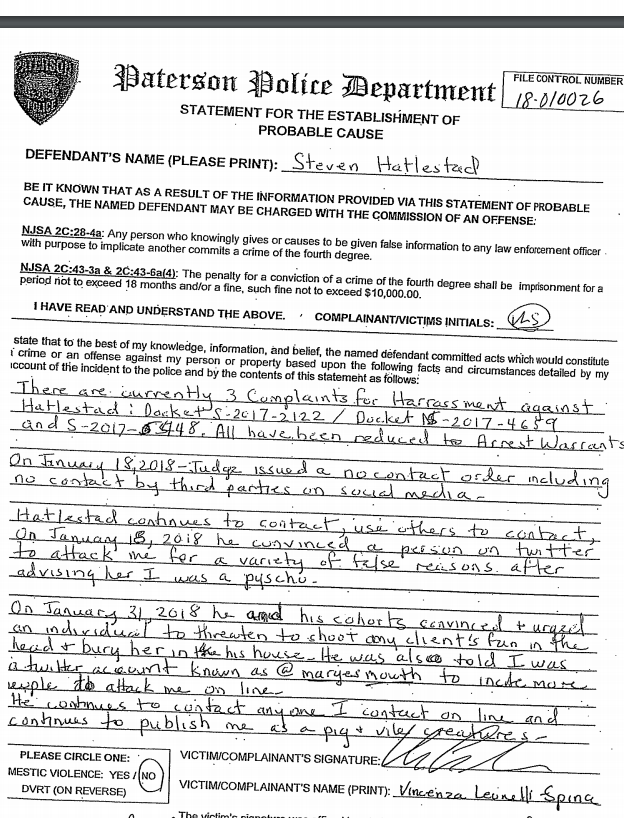 PATERSON
POLICE
Paterson Police Department
FILE CONTROL NUMBER
18-010026
STATEMENT FOR THE ESTABLISHMENT OF
PROBABLE CAUSE
DEFENDANT'S NAME (PLEASE PRINT): Steven Hatlestad
BE IT KNOWN THAT AS A RESULT OF THE INFORMATION PROVIDED VIA THIS STATEMENT OF PROBABLE
CAUSE, THE NAMED DEFENDANT MAY BE CHARGED WITH THE COMMISSION OF AN OFFENSE:
NJSA 2C:28-4a: Any person who knowingly gives or causes to be given false information to any law enforcement officer
with purpose to implicate another commits a crime of the fourth degree.
NJSA 2C:43-3a & 2C:43-6a(4): The penalty for a conviction of a crime of the fourth degree shall be imprisonment for a
period not to exceed 18 months and/or a fine, such fine not to exceed $10,000.00.
I HAVE READ AND UNDERSTAND THE ABOVE. COMPLAINANT/VICTIMS INITIALS:
state that to the best of my knowledge, information, and belief, the named defendant committed acts which would constitute
crime or an offense against my person or property based upon the following facts and circumstances detailed by my
account of the incident to the police and by the contents of this statement as follows:
There are currently 3 Complaints for Harrassment against
Hatlestad: Docket S-2017-2122 / Docket S-2017-4659
and S-2017-5948. All have been reduced to Arrest Warrants
On Jinuary 18, 2018 - Judge issued a no contact order including
no contact by third parties on social media -
Hatlestad continues to contact, use others to contact,
On January 18, 2018 he convinced a person on twitter
to attack me for a variety of false reasons after
advising her I was a pyscho.
On January 31, 2018 he and his cohorts convinced + urged
an individual to threaten to shoot my client's fan in the
head + bury her in his house. He was also told I was
a twitter account known as @maryesmouth to incite more
people to attack me on line.
He continues to contact anyone I contact on line and
continues to publish me as a pig + viley creatures -
PLEASE CIRCLE ONE:
MESTIC VIOLENCE: YES / NO
DVRT (ON REVERSE)
VICTIM/COMPLAINANT'S SIGNATURE:
VICTIM/COMPLAINANT'S NAME (PRINT): Vincenza Leonelli Spina